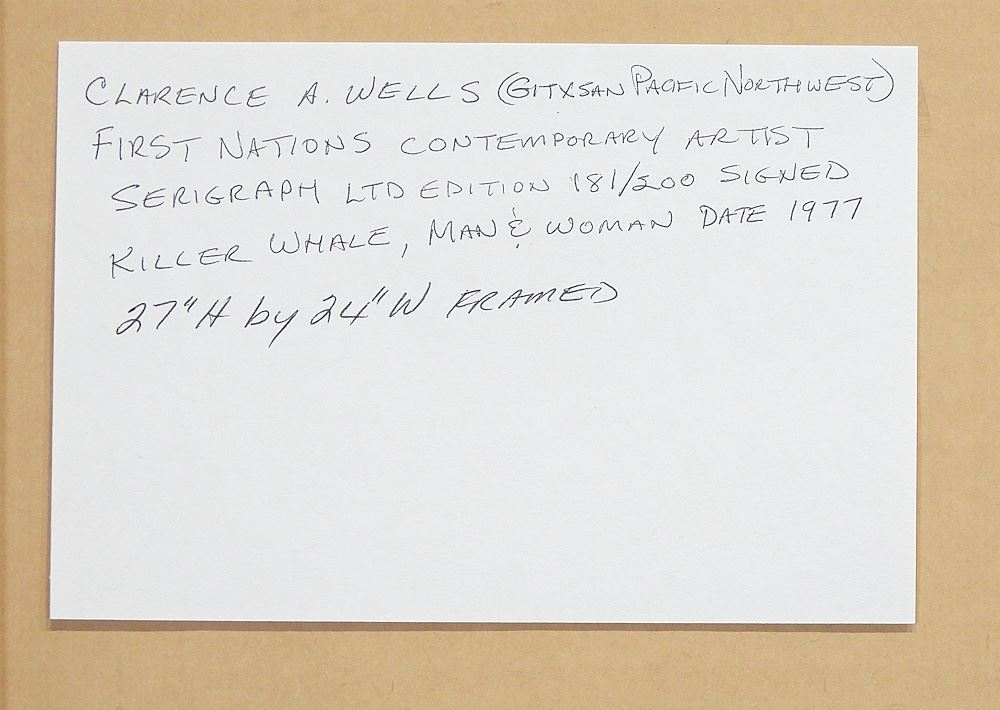 CLARENCE A. WELLS (GITXSAN PACIFIC NORTHWEST)
FIRST NATIONS CONTEMPORARY ARTIST
SERIGRAPH LTD EDITION 181/200 SIGNED
KILLER WHALE, MAN & WOMAN DATE 1977
27"H by 24"W FRAMED